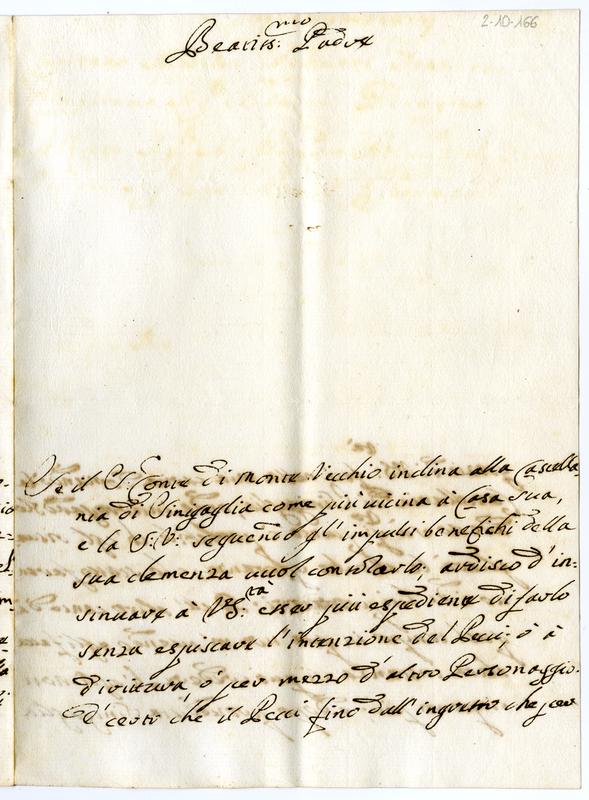 2-10-166
Beatis:mo Padre
Se il S: Conte di Monte Vecchio inclina alla Castella-
nia di Sinigaglia come più uicina à Casa sua,
e la S: V: seguendo gl'impulsi benefichi della
sua clemenza uuol consolarlo; ardisco d'in-
sinuare à V S:tà esser più espediente di farlo
senza espiscare l'intenzione del Pecci, ò à
dirittura, ò per mezzo d'altro Personaggio.
È certo che il Pecci fino dall' ingresso che fece